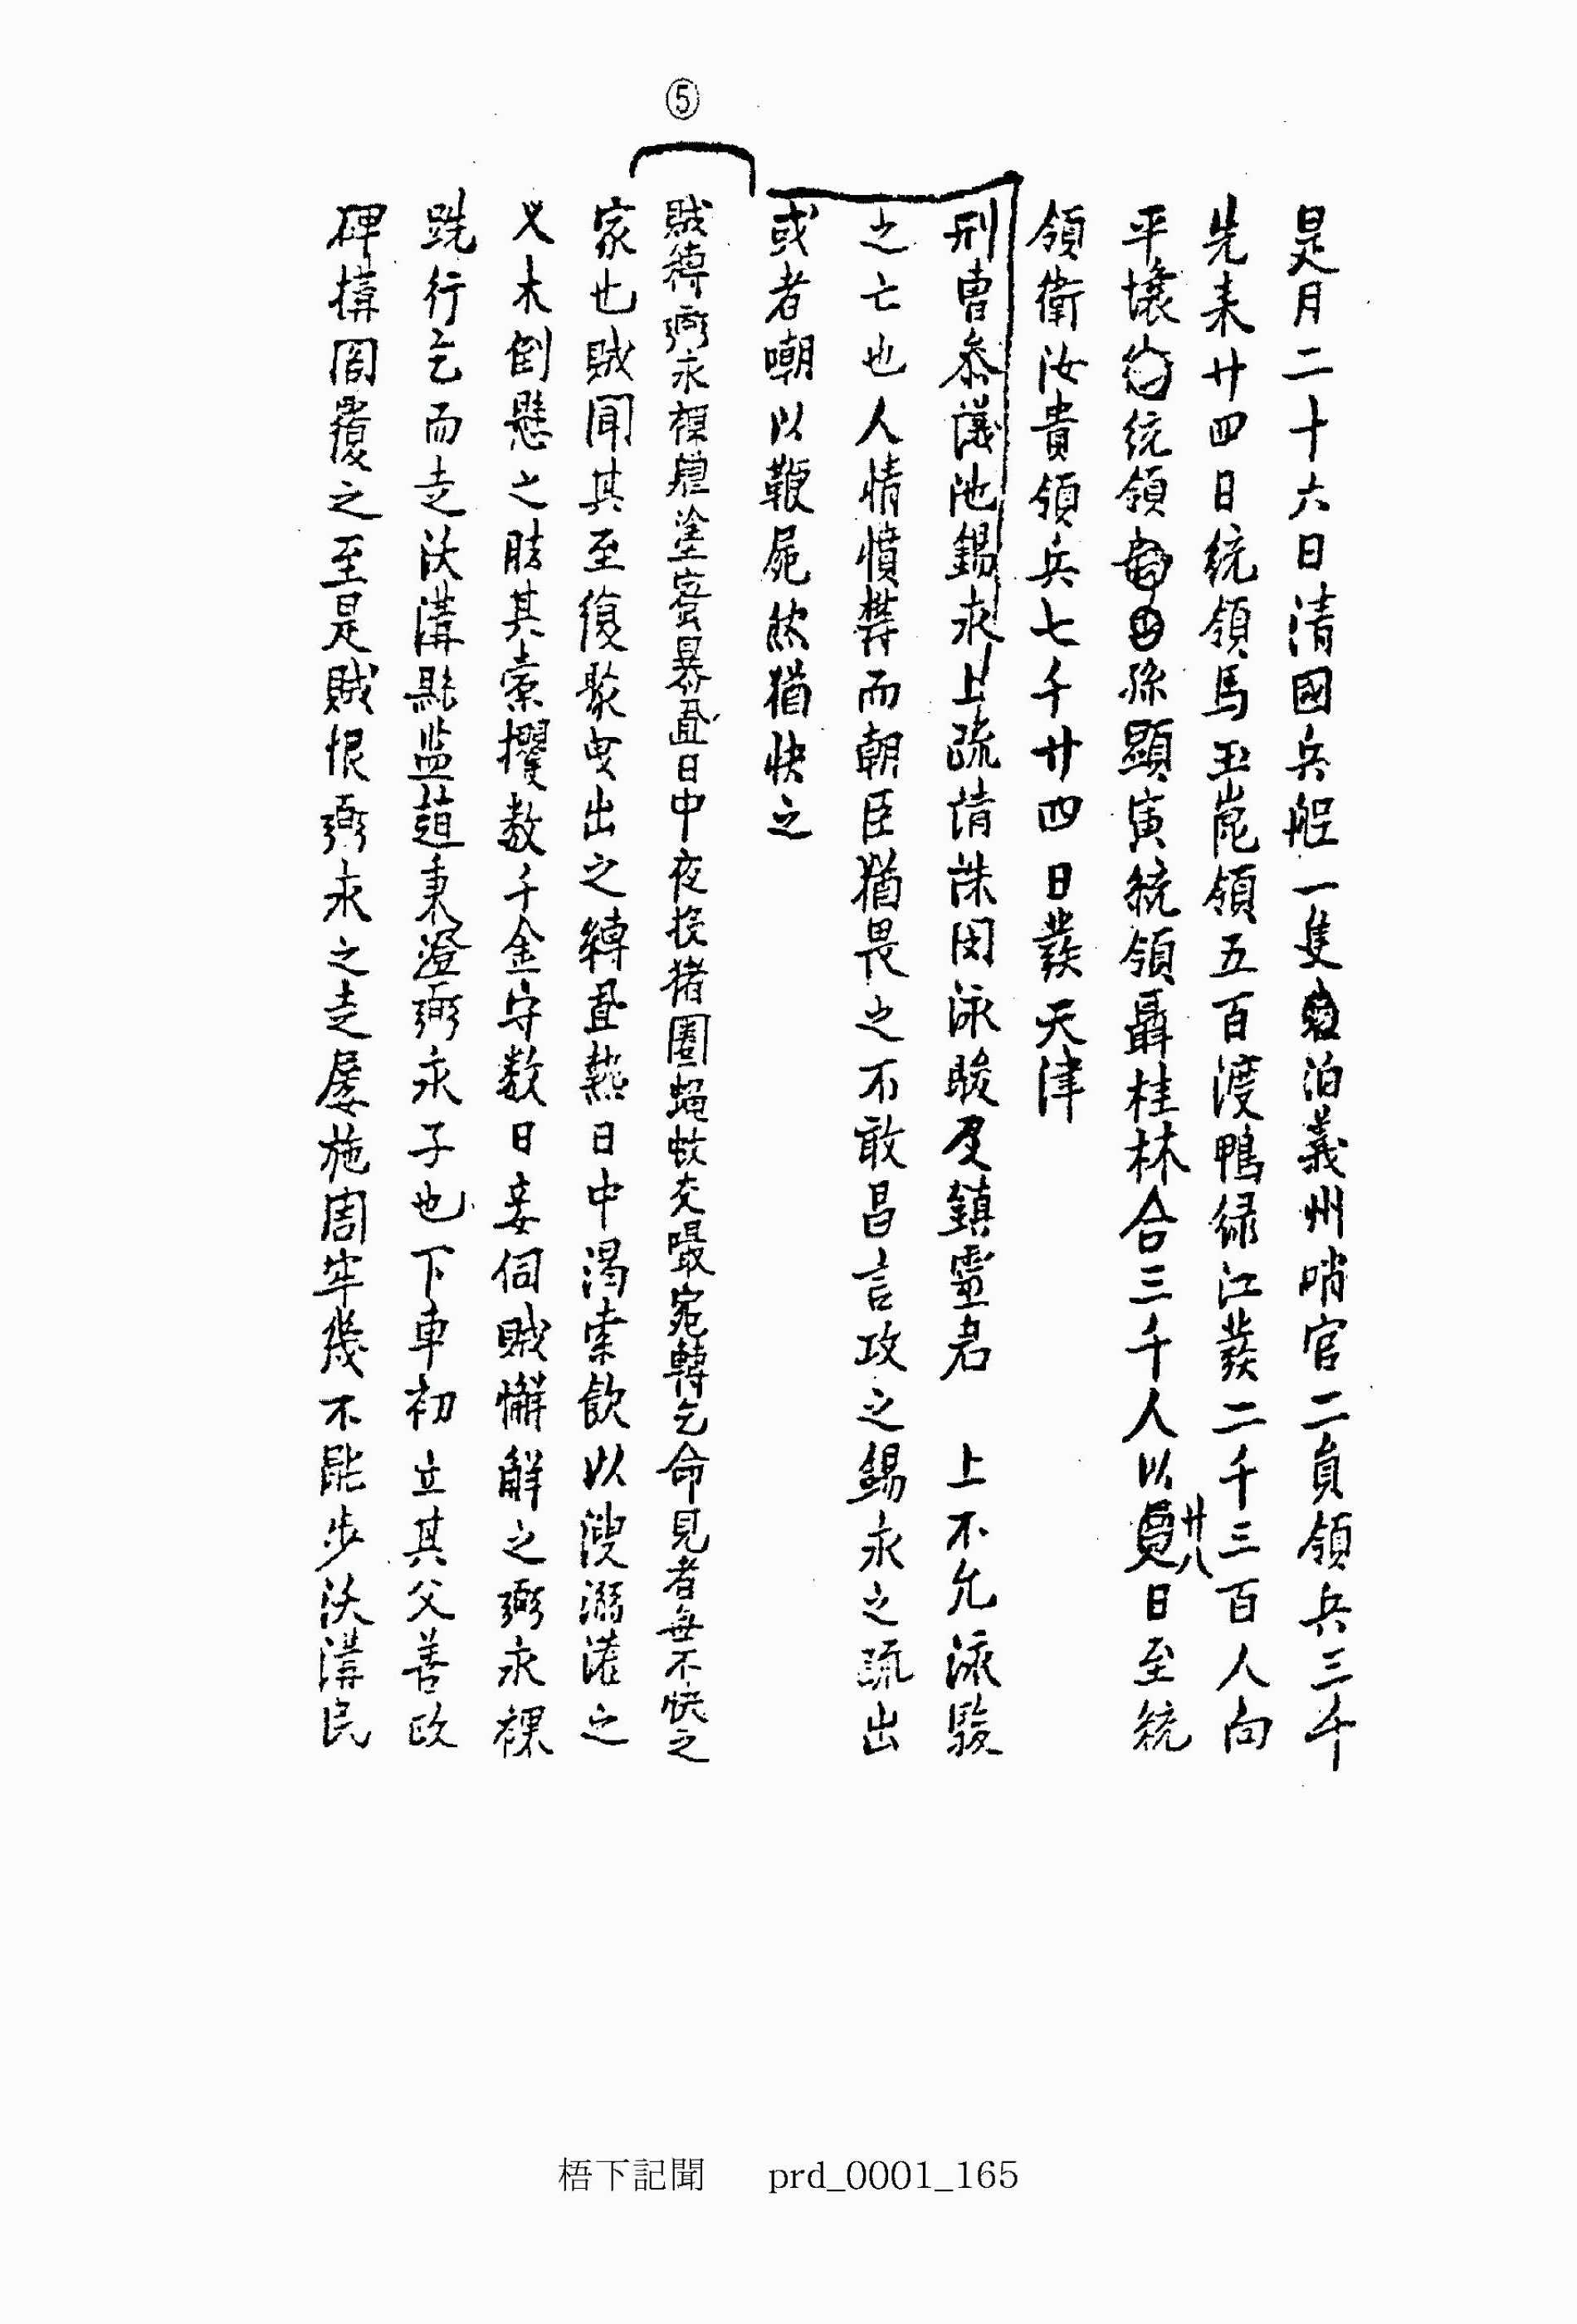 ⑤
是月二十六日清國兵艦一隻泊義州哨官二員領兵三千
先來廿四日統領馬玉崑領五百渡鴨綠江發二千三百人向
平壤統領孫顯寅統領聶桂林合三千人以廿八日至統
領衛汝貴領兵七千廿四日發天津
刑曹參議池錫永上疏請誅閔泳駿及鎮靈君 上不允泳駿
之亡也人情憤欝而朝臣猶畏之不敢昌言攻之錫永之疏出
或者嘲以鞭屍然猶快之
賊縛弼永裸體塗蜜暴置日中夜投猪圈蝇蚊交嘬宛轉乞命見者無不快之
家也賊聞其至復聚曳出之縛置熱日中渴索飲以溲溺灌之
乂木倒懸之肱其橐攫数千金守数日妾伺賊懈解之弼永裸
跣行乞而走沃溝監趙秉澄弼永子也下車初立其父善政
碑搆閣覆之至是賊恨弼永之走屡施周牢幾不能步沃溝民
梧下記聞 prd_0001_165